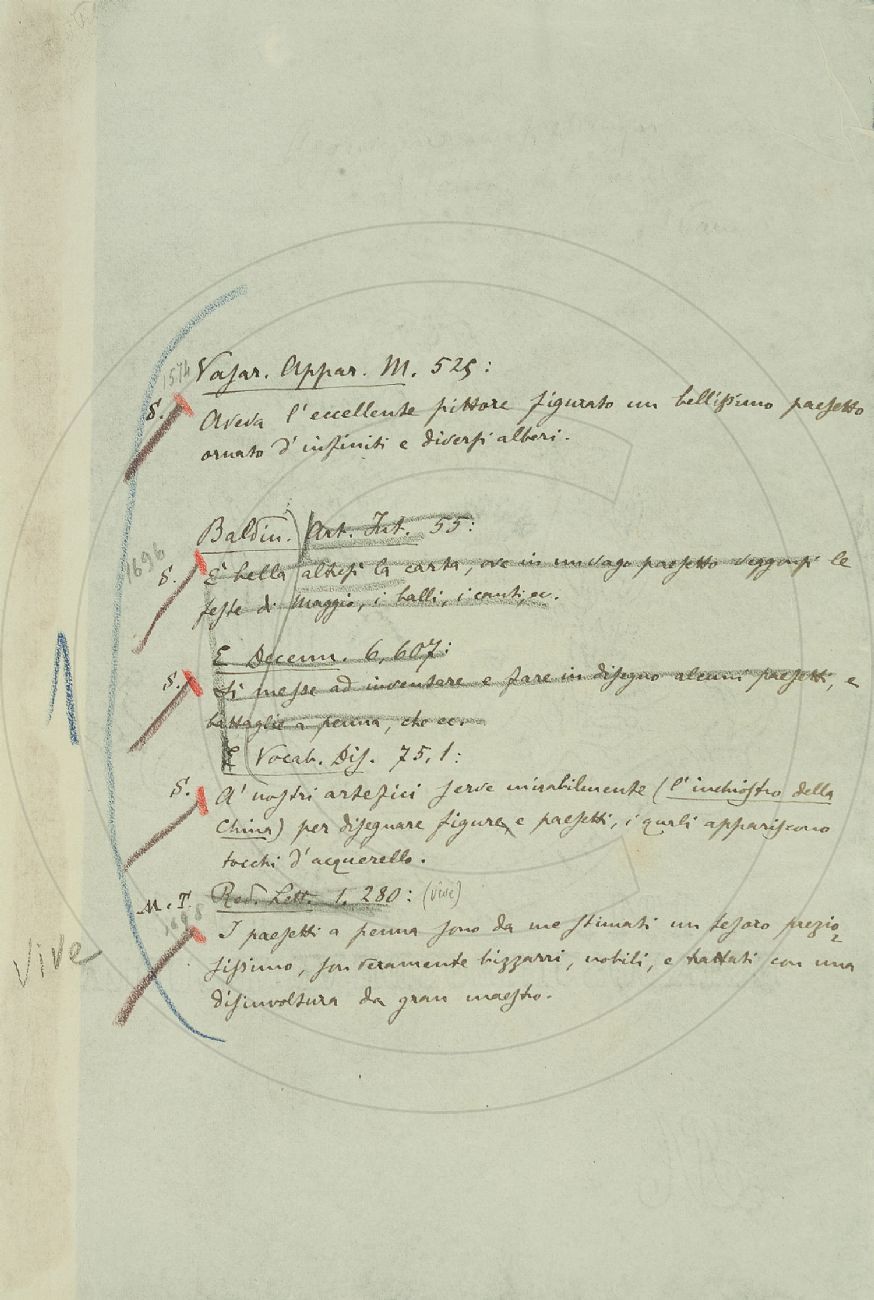 1574
Vasar. Appar. M. 525:
S.
Aveva l'eccellente pittore figurato un bellissimo paesetto
ornato d'infiniti e diversi alberi.
Baldin. Art. Int. 55:
1696
S.
È bella altresì la carta, ove in un vago paesetto veggonsi le
feste di Maggio, i balli, i canti, ec.
E Decenn. 6, 607:
S.
Si messe ad inventare e fare in disegno alcuni paesetti, e
battaglie a penna, che ec.
E Vocab. Dis. 75, 1:
S.
A' nostri artefici serve mirabilmente (l'inchiostro della
China) per disegnare figure, e paesetti, i quali appariscono
tocchi d'acquerello.
M. T. Red. Lett. 1, 280: (vive)
1698
I paesetti a penna sono da me stimati un tesoro prezio=
sissimo, son veramente bizzarri, nobili, e trattati con una
disinvoltura da gran maestro.
Vive